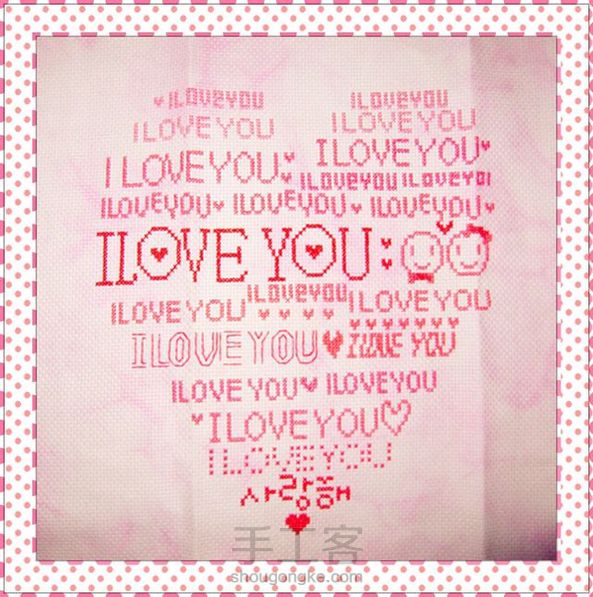 ILOVEYOU ILOVEYOU
ILOVEYOU ILOVEYOU
I LOVEYOU ILOVEYOU
ILOVEYOU ILOVEYOU
ILOVEYOU ILOVEYOU ILOVEYOU
ILOVE YOU
ILOVEYOU ILOVEYOU ILOVEYOU
ILOVE YOU ILOVE YOU
ILOVE YOU ILOVEYOU
ILOVEYOU
ILOVEYOU
사랑해
手工客
shougongke.com